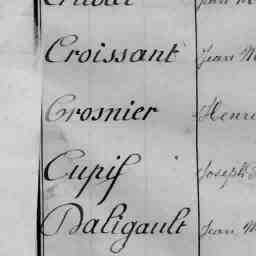 Croissant Jean M
Crosnier Henri
Cupif Joseph
Daligault Jean M